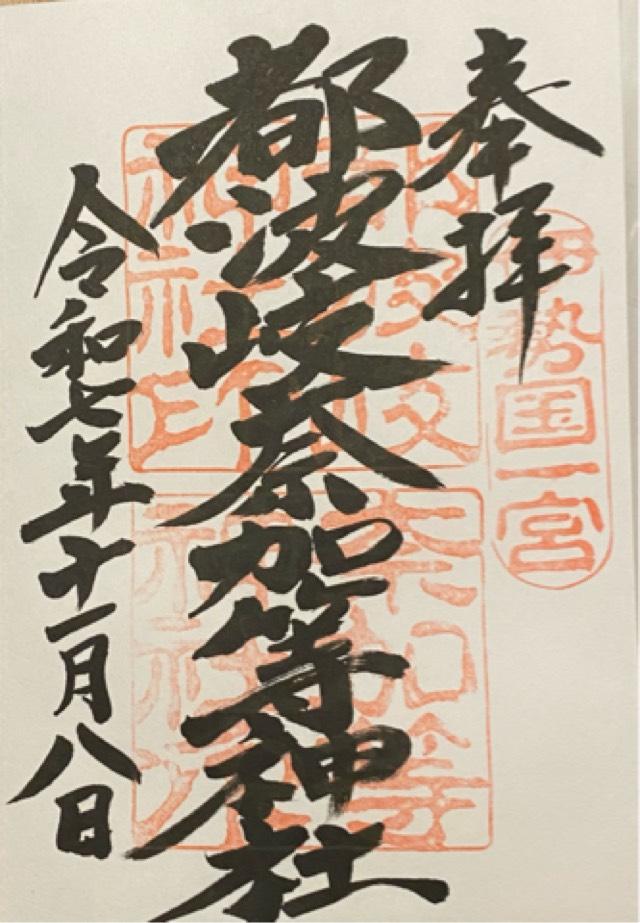 奉拝
伊勢国一宮
都波岐奈加等神社
都波岐
神社印
奈加等
神社印
令和七年十一月八日